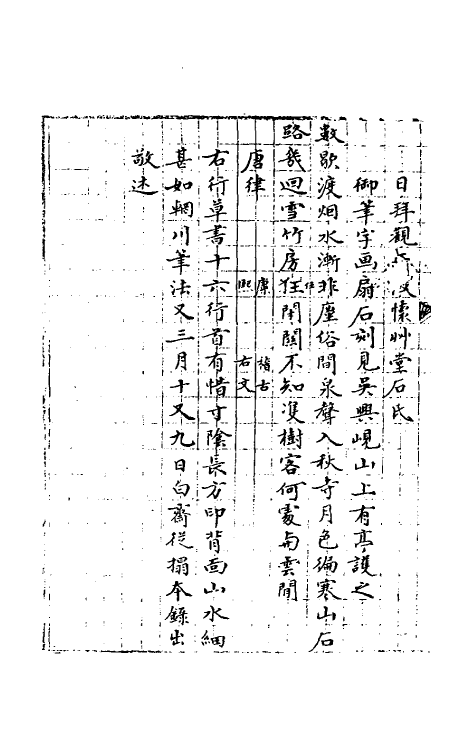 日拜觀 懷艸堂石氏
御筆字画扇石刻見吳興峴山上有亭護之
數歇渡烟水漸非塵俗間泉聲入秋寺月色徧寒山石
路幾迴雪竹房閉關不知雙樹客何處與雲閒
唐律 康熙 稽古右文
右行草書十六行首有惜寸陰長方印背面山水細
甚如輞川筆法又三月十又九日白齋從搨本錄出
敬述